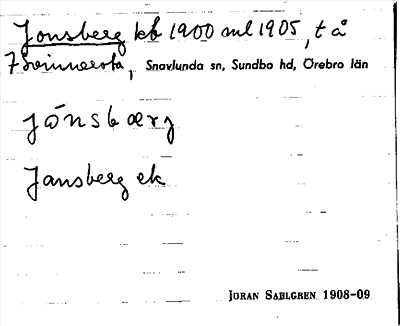 Jonsberg kb 1900 ml 1905, t å
Snavlunda sn, Sundbo hd, Örebro län
jǡnsbærj
Jansberg ek
JÖRAN SAHLGREN 1908-09